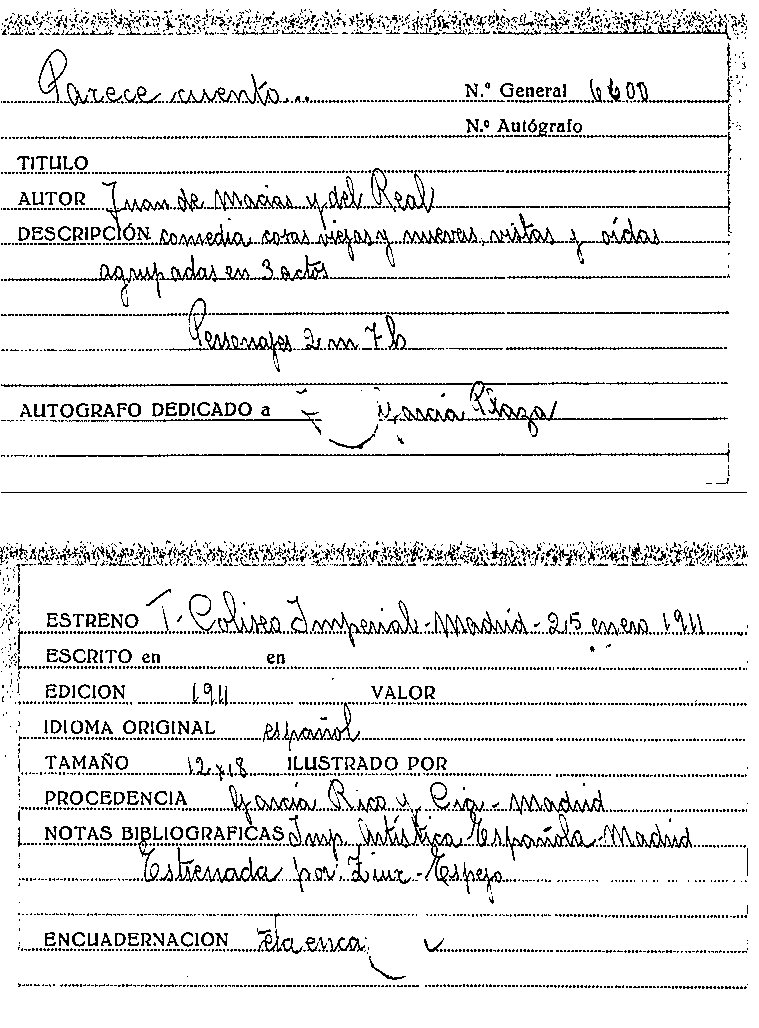 Parece cuento... N.º General 6600
N.º Autógrafo
TITULO
AUTOR Juan de Macias y del Real
DESCRIPCIÓN comedia cosas viejas y nuevas, vistas y oídas
agrupadas en 3 actos
Personajes 2 m 7 h
AUTOGRAFO DEDICADO a García Plaza
ESTRENO T. Coliseo Imperial - Madrid - 25 enero 1911
ESCRITO en en
EDICION 1911 VALOR
IDIOMA ORIGINAL español
TAMAÑO 12x18 ILUSTRADO POR
PROCEDENCIA García Rico y Cia - Madrid
NOTAS BIBLIOGRAFICAS Imp. Artística Española - Madrid
Estrenada por: - Espejo
ENCUADERNACION tela enca